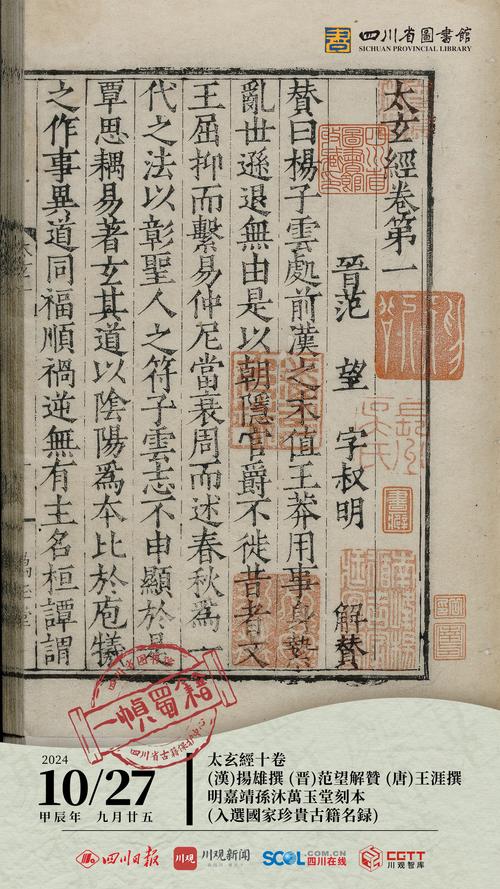 四川省圖書館
SICHUAN PROVINCIAL LIBRARY
太玄經卷第一
晉范 望 字叔明 解賛
賛曰楊子雲處前漢之末值王莽用事身縶
亂世遜退無由是以朝隱官爵不徙昔者文
王屈抑而繫易仲尼當衰周而述春秋為一
代之法以彰聖人之符子雲志不申顯於是
覃思耦易著玄其道以陰陽為本比於庖犧
之作事異道同福順禍逆無有主名桓譚謂
四川省圖書館
一幀蜀籍
四川省古籍保護中心
2024
10/27
甲辰年 九月廿五
太玄經十卷
(漢)揚雄撰 (晋)范望解贊 (唐)王涯撰
明嘉靖孫沐萬玉堂刻本
(入選國家珍貴古籍名録)
四川日报
川观
川观新闻
SCOL.COM.CN
四川在线
CGTT
川观智库